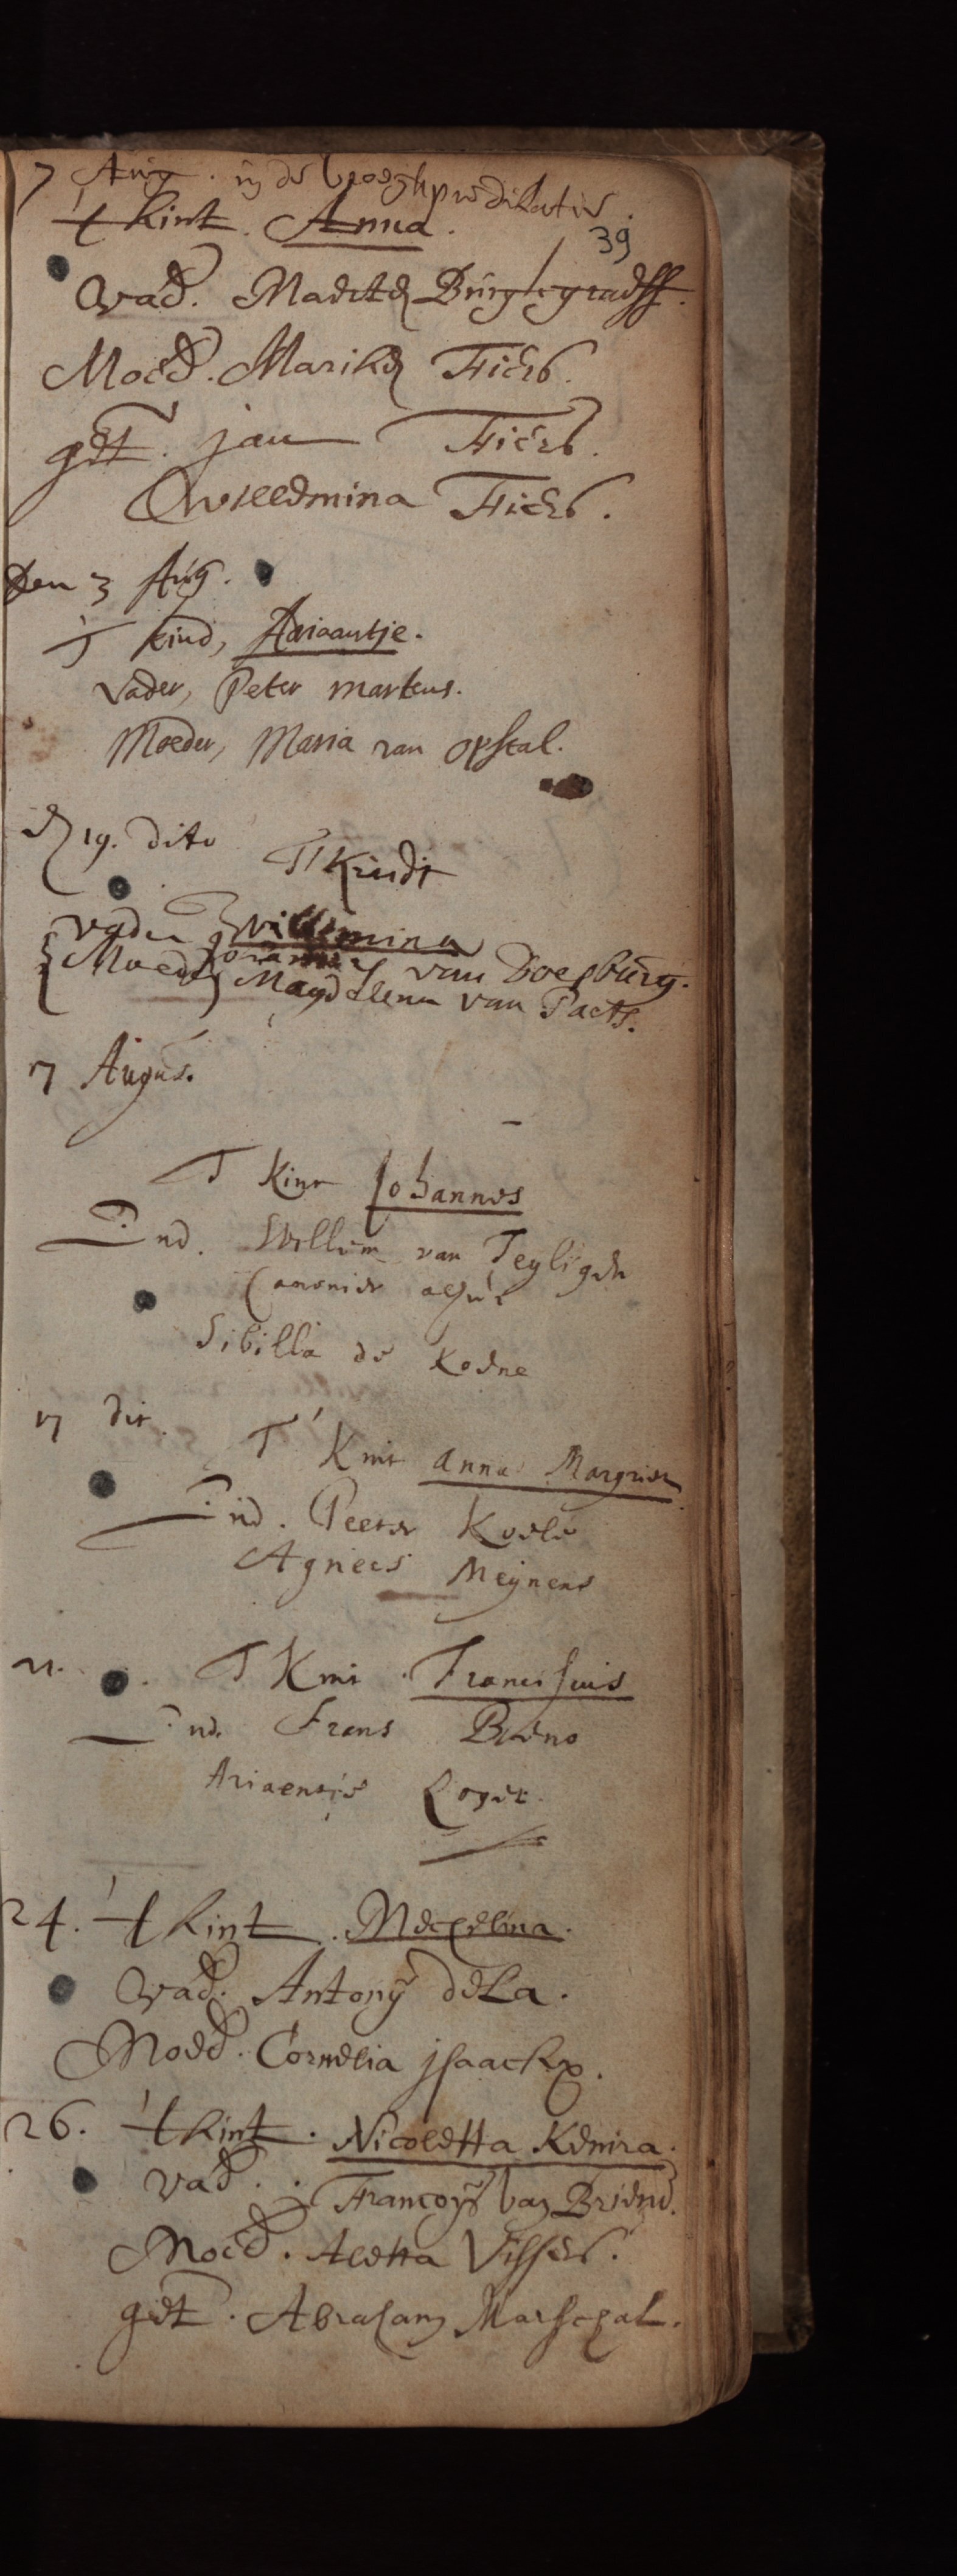 7 Aug. in de vroeghpredikatie.
't kint. Anna.
39
Vad. Maerten Burghgraeff.
Moed. Mariken Fiers.
get. jan Fiers.
Willemina Fiers.
Den 3 Aug.
'T kind, Adriaantje.
Vader, Peter martens.
Moeder, Maria van opstal.
den 19. dito T' Kindt
Willemina
vader Johannes van Doesburg.
Moeder Magdalena van Paets.
17 Augus.
T Kint Johannes
Ind. Willem van Teyligen
Canonier alhier
Sibilla de Koene
17 dit. T' Kint Anna Margriet
Ind. Peeter Koele
Agnees Meynens
21. T Kint Franciscus
Ind. Frans Bueno
Ariaentie
24. 't kint. Mechelina.
Vad. Antony dela.
Moed. Cornelia jsaackx.
26. 't kint. Nicoletta Kemira.
vad. Francoys van Briene.
Moed. Aletta Vissers.
get. Abraham Marschal.